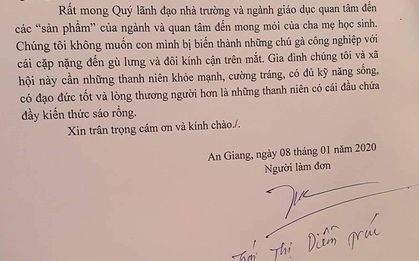 Rất mong Quý lãnh đạo nhà trường và ngành giáo dục quan tâm đến
các “sản phẩm” của ngành và quan tâm đến mong mỏi của cha mẹ học sinh.
Chúng tôi không muốn con mình bị biến thành những chú gà công nghiệp với
cái cặp nặng đến gù lưng và đôi kính cận trên mắt. Gia đình chúng tôi và xã
hội này cần những thanh niên khỏe mạnh, cường tráng, có đủ kỹ năng sống,
có đạo đức tốt và lòng thương người hơn là những thanh niên có cái đầu chứa
đầy kiến thức sáo rỗng.
Xin trân trọng cám ơn và kính chào./.
An Giang, ngày 08 tháng 01 năm 2020
Người làm đơn
Thị Diễm Trúc